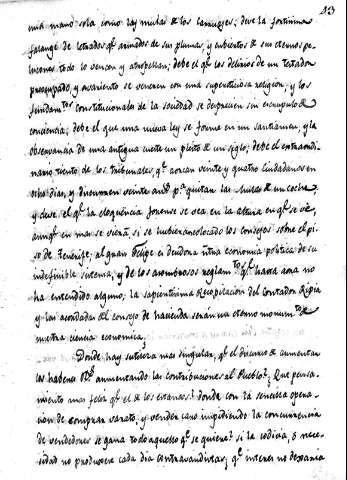 13
una mano sola como ley mulas &c los carruages; deve la fortisima
falange de letrados q.e armados de sus plumas y cubiertos de sus eternos pe-
lucones todo lo vencen y atropellan; debe el q.e los delirios de un testador
preocupado y avariento se veneren con una supersticiosa religion, y los
fundam.tos constitucionales de la sociedad se desprecien sin escrupulo &
conciencia; debe el que una nueva ley se forme en un santiamen, y la
observancia de una antigua cueste un pleito de un siglo; debe el extraordi-
nario tiento de los tribunales, q.e aorcan veinte y quatro Ciudadanos en
ocho dias, y discurren veinte años p.a quitan las mulas de un coche
y deve el q.e la eloquencia forense se vea en la altura en q.e se ve,
aunq.e en mas se viera, si se hubieran colocado los consejos sobre el pi-
co de Tenerife; al gran Felipe es deudora ntra economia politica de su
indefinible sistema, y de los asombrosos reglam.tos q.e hasta aora no
ha entendido alguno; la sapientisima Recopilacion del Contador Ripia
y las acordadas del consejo de hacienda seran un eterno monum.to de
nuestra ciencia economica.
Donde hay sutileza mas singular, q.e el discurso de aumentar
los haberes R.s aumentando las contribuciones al Pueblo? Que pensa-
miento mas feliz q.e el de los estancos? donde con la sencilla opera-
cion de comprar varato, y vender caro impidiendo la concurrencia
de vendedores se gana todo aquello q.e se quiere? si la codicia, o nece-
sidad no produxera cada dia contravandistas, q.e interes no dexaria